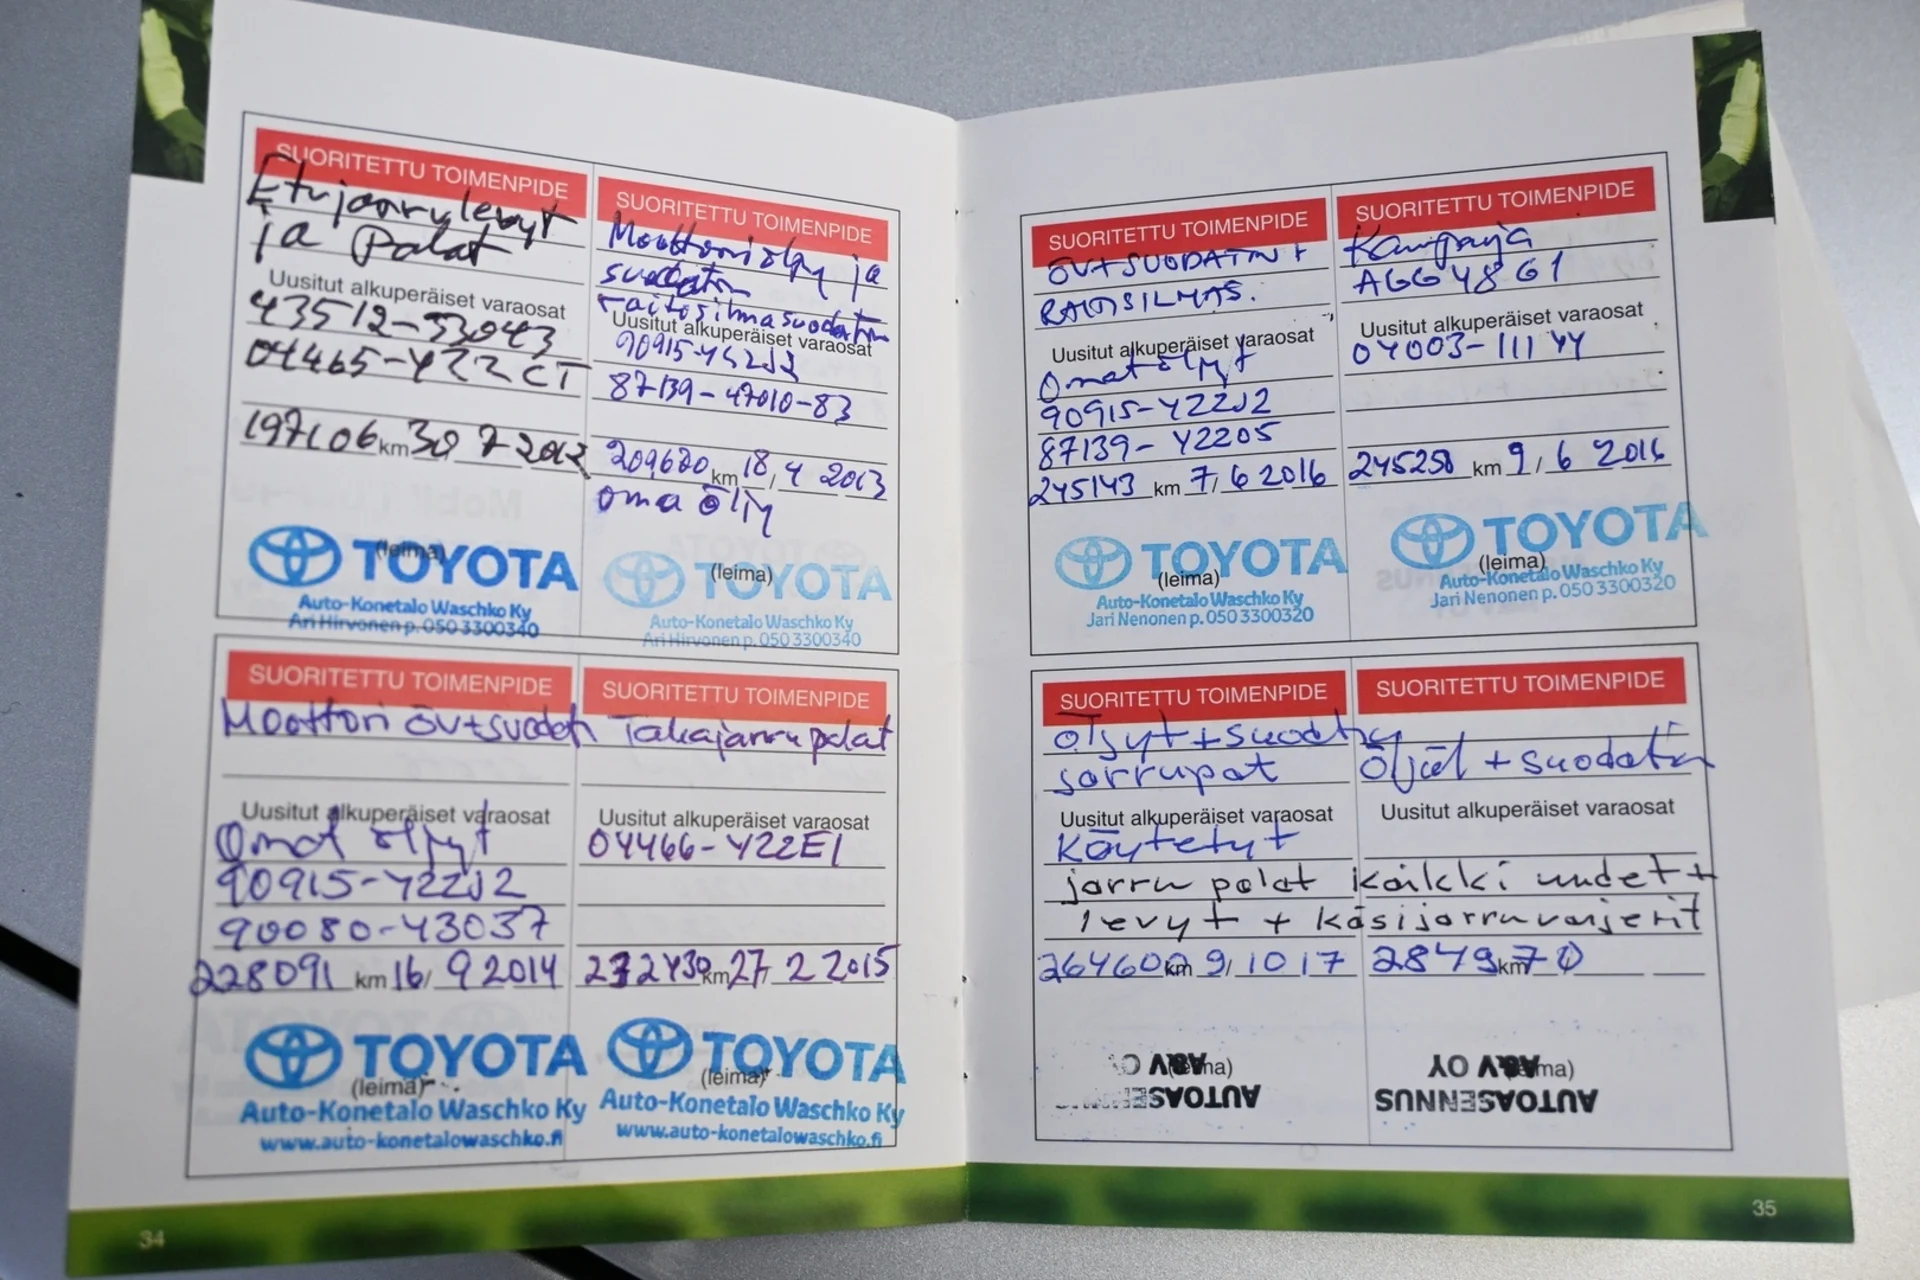 SUORITETTU TOIMENPIDE
Etujarrulevyt
ja Palat
Uusitut alkuperäiset varaosat
43512-53043
04465-YZZCT
197106 km 30 7 2012
(leima)
TOYOTA
Auto-Konetalo Waschko Ky
Ari Hirvonen p. 050 3300340
SUORITETTU TOIMENPIDE
Moottoriöljy ja
suodatin
raitisilmasuodatin
Uusitut alkuperäiset varaosat
90915-YZZJ2
87139-47010-83
209620 km 18, 4 2013
oma öljy
(leima)
TOYOTA
Auto-Konetalo Waschko Ky
Ari Hirvonen p. 050 3300340
SUORITETTU TOIMENPIDE
Moottori öv+suodatin
Uusitut alkuperäiset varaosat
Omat öljyt
90915-YZZJ2
90080-43037
228091 km 16/ 9 2014
TOYOTA
(leima)
Auto-Konetalo Waschko Ky
www.auto-konetalowaschko.fi
SUORITETTU TOIMENPIDE
Takajarrupalat
Uusitut alkuperäiset varaosat
04466-YZZE1
232430 km 27/ 2 2015
TOYOTA
(leima)
Auto-Konetalo Waschko Ky
www.auto-konetalowaschko.fi
34
SUORITETTU TOIMENPIDE
ÖV+SUODATIN+
RAITISILMAS.
Uusitut alkuperäiset varaosat
Omat öljyt
90915-YZZJ2
87139-YZZ05
245143 km 7/ 6 2016
TOYOTA
(leima)
Auto-Konetalo Waschko Ky
Jari Nenonen p. 050 3300320
SUORITETTU TOIMENPIDE
Kampanja
AGG48G1
Uusitut alkuperäiset varaosat
04003-111YY
245258 km 9/ 6 2016
TOYOTA
(leima)
Auto-Konetalo Waschko Ky
Jari Nenonen p. 050 3300320
SUORITETTU TOIMENPIDE
Öljyt+suodatin
jarrupat
Uusitut alkuperäiset varaosat
Käytetyt
SUORITETTU TOIMENPIDE
Öljyt + suodatin
Uusitut alkuperäiset varaosat
jarru palat kaikki uudet +
levyt + käsijarruvaijerit
264600 km 9/ 10 17
284970 km
AUTOASENNUS
A&V OY
AUTOASENNUS
A&V OY
35